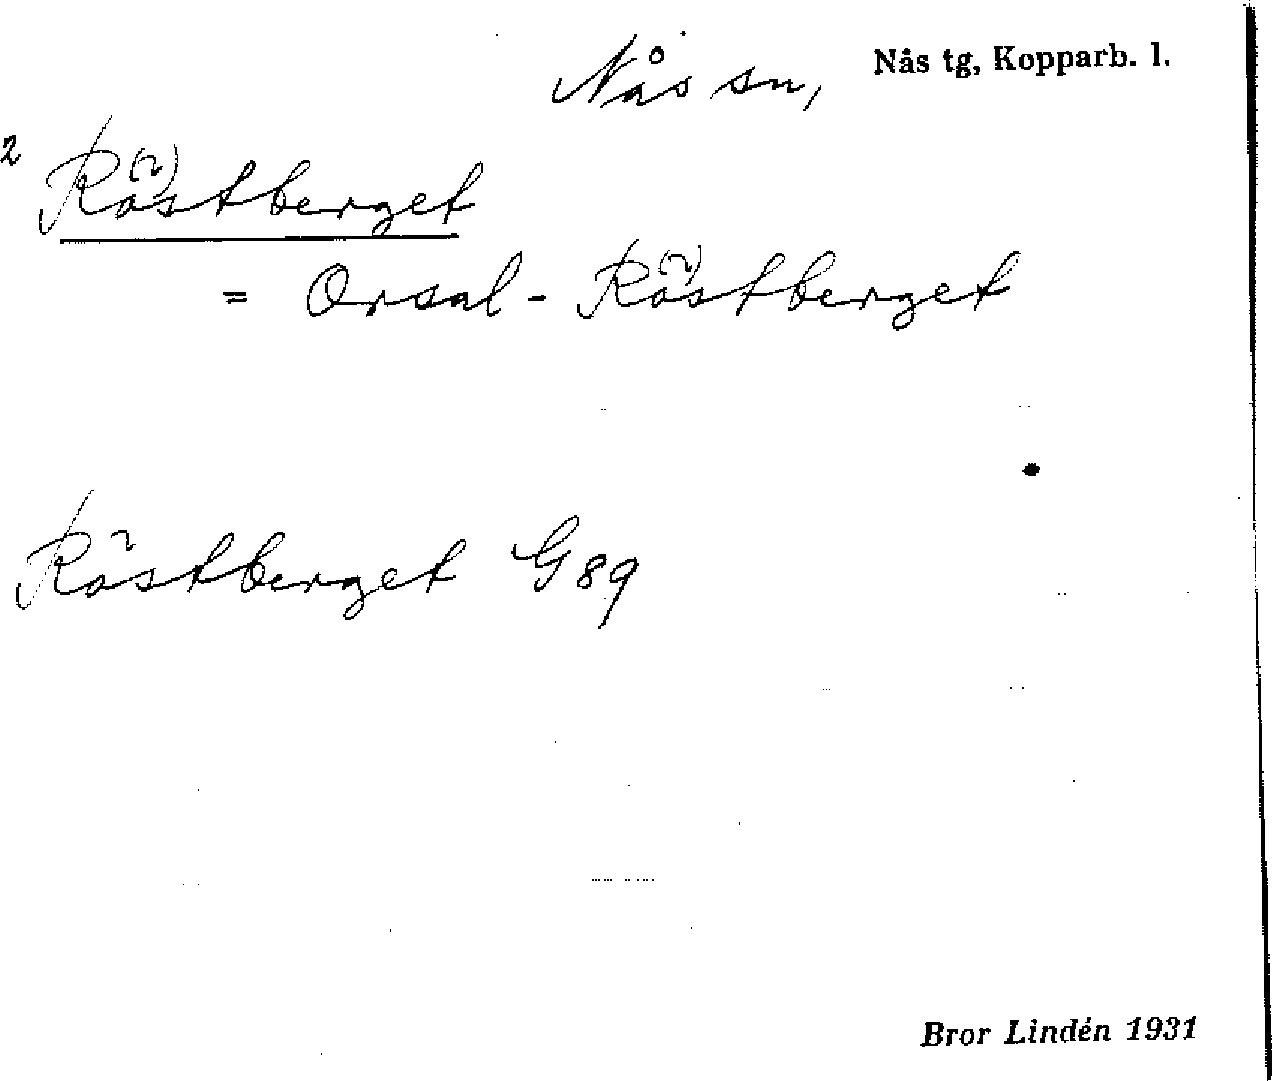 Nås sn, Nås tg, Kopparb. l.
2
Röstberget
= Orsal-Röstberget
Röstberget G 89
Bror Lindén 1931